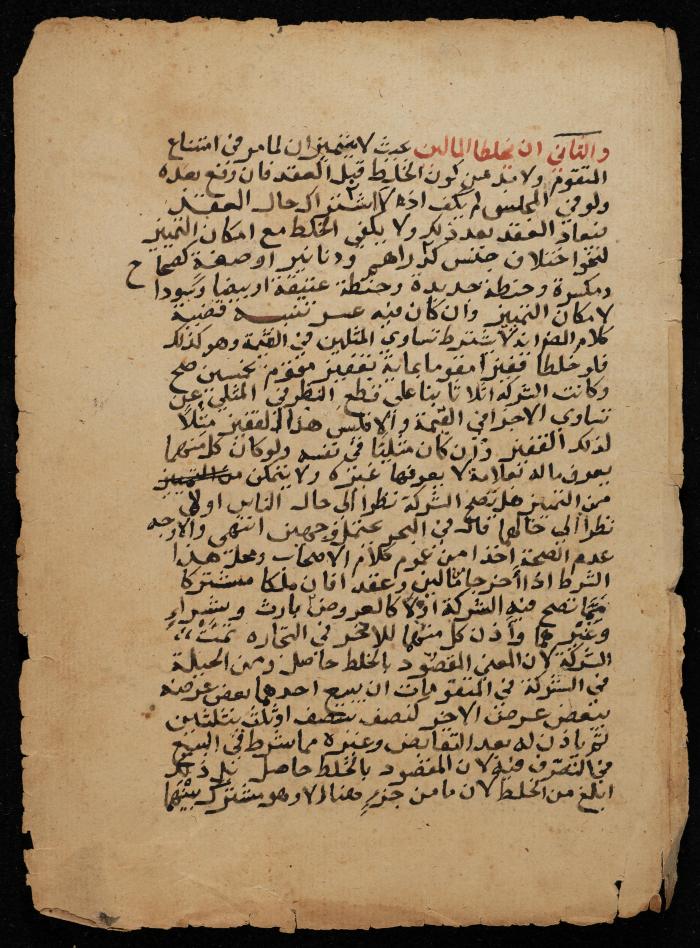 والثاني ان يخلطا المالين بحيث لا يتميزان لما مر في امتناع
المتقوم ولا بد من كون الخلط قبل العقد فان وقع بعده
ولو في المجلس لم يكف اذ لا اشتراك حال العقد
فيعاد العقد بعد ذلك ولا يكفي الخلط مع امكان التمييز
لنحو اختلاف جنس كدراهم ودنانير او صفة كصحاح
ومكسرة وحنطة جديدة وحنطة عتيقة او بيضا وسودا
لامكان التمييز وان كان فيه عسر تنبيه قضية
كلام المص انه لا يشترط تساوي المثلين في القيمة وهو كذلك
فلو خلطا قفيزا مقوما بماية بقفيز مقوم بخمسين صح
وكانت الشركة اثلاثا بنا على قطع النظر في المثلي عن
تساوي الاجزا في القيمة والا فليس هذا القفيز مثلا
لذلك القفيز وان كان مثليا في نفسه ولو كان كل منهما
يعرف ماله بعلامة لا يعرفها غيره ولا يتمكن من التمييز
من التمييز هل تصح الشركة نظرا الى حال الناس او لا
نظرا الى حالهما قال في البحر يحتمل وجهين انتهى والاوجه
عدم الصحة اخذا من عموم كلام الاصحاب ومحل هذا
الشرط اذا اخرجا مالين وعقد افان ملكا مشتركا
مما تصح فيه الشركة اولا كالعروض بارث وشراء
وغيرهما وأذن كل منهما للاخر في التجاره تمت
الشركة لان المعنى المقصود بالخلط حاصل ومن الحيلة
في الشركة في المتقومات ان يبيع احدهما بعض عرضه
ببعض عرض الاخر كنصف بنصف او ثلث بثلثين
ثم ياذن له بعد التقابض وغيره مما شرط في البيع
في التصرف فيه لان المقصود بالخلط حاصل بل ذلك
ابلغ من الخلط لان ما من جزء هنا الا وهو مشترك بينهما